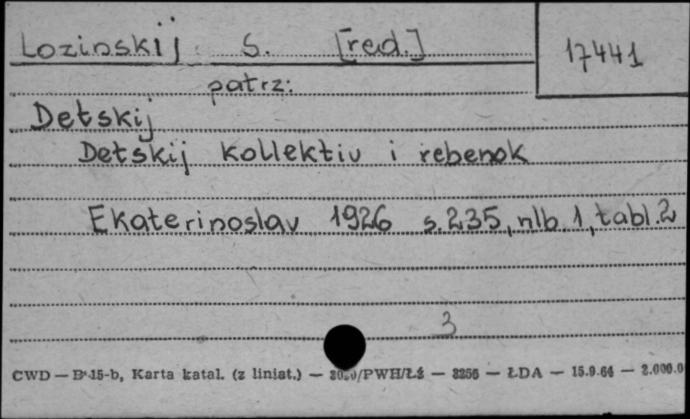 Lozinskij S. [red.]
17441
patrz:
Detskij
Detskij kollektiv i rebenok
Ekaterinoslav 1926 s.235, nlb.1, tabl.2
3
CWD — B-15-b, Karta katal. (z liniat.) — /PWH/Łż — 3256 — ŁDA — 15.9.64 — 2.000.0